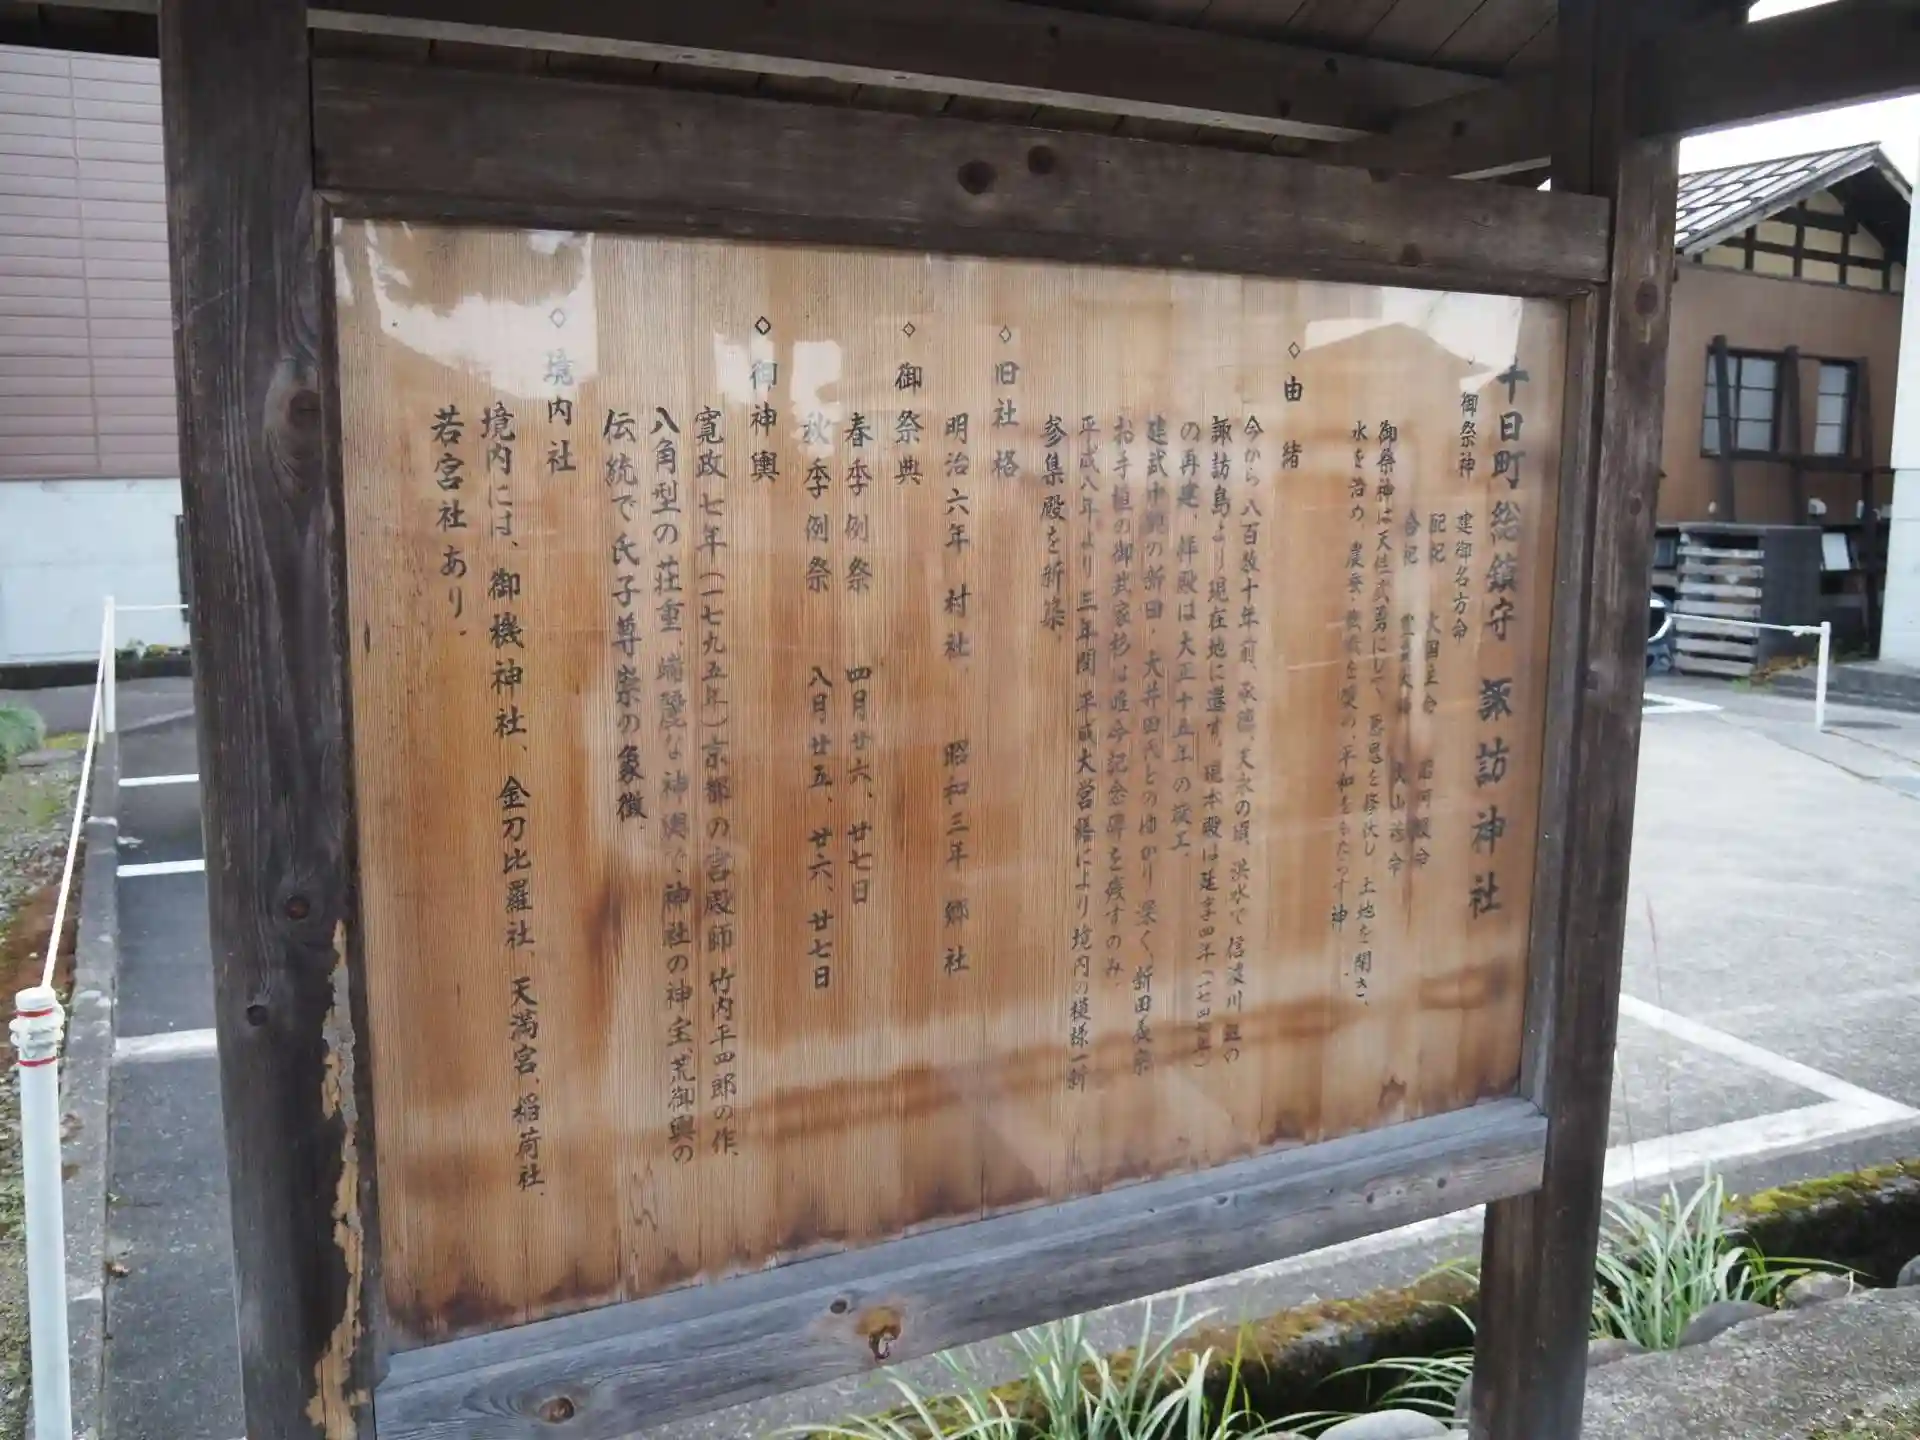 十日町総鎮守 諏訪神社
御祭神 建御名方命
配祀 大国主命
合祀
御祭神は天性武勇にして、悪思を修伏し、土地を開き、
水を治め、農養・機織を奨め、平和をもたらす神.
◇由緒
今から八百数十年前、承徳、天永の頃、洪水で信濃川辺の
諏訪島より現在地に還す。現本殿は延享四年(一七四七年)
の再建、拝殿は大正十五年の竣工.
建武中興の新田・大井田氏とのゆかり深く、新田義宗
お手植の御武家杉は唯今記念碑を残すのみ.
平成八年より三年間平成大営繕により境内の模様一新
参集殿を新築.
◇旧社格
明治六年 村社. 昭和三年 郷社
◇御祭典
春季例祭 四月廿六、廿七日
秋季例祭 八月廿五、廿六、廿七日
◇御神輿
寛政七年(一七九五年)京都の宮殿師 竹内平四郎の作.
八角型の荘重、端麗な神輿で、神社の神宝、荒御輿の
伝統で氏子尊崇の象徴.
◇境内社
境内には、御機神社、金刀比羅社、天満宮、稲荷社、
若宮社あり.